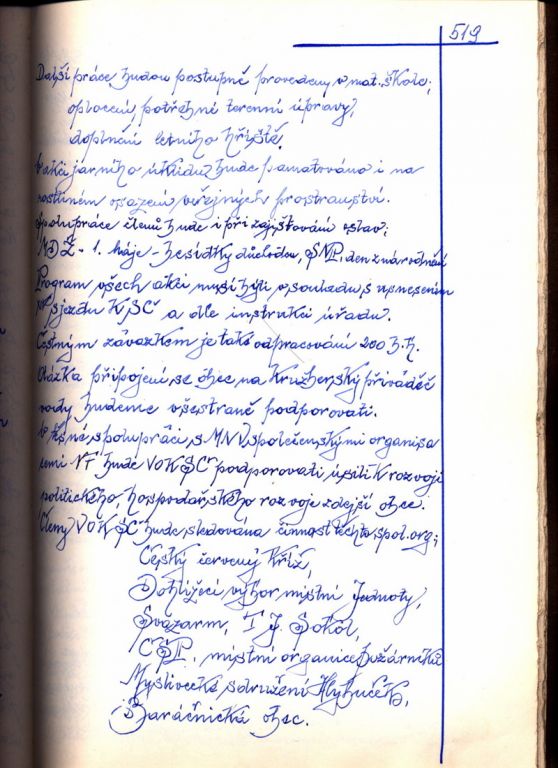 519
Další práce budou postupně provedeny v mat. škole;
oplocení, potřebné terenní úpravy,
doplnění letního hřiště.
V akci jarního úklidu bude pamatováno i na
rostliném osazení veřejných prostranství.
Spolupráce členů bude i při zajišťování oslav;
MDŽ - 1. máje - besídky důchodců, SNP, den znárodnění
Program všech akcí musí býti v souladu s usnesením
sjezdu KSČ a dle instrukcí úřadu.
Čestným závazkem je také odpracování 200 b.h.
Otázka připojení se obec na Kružberský přivaděč
vody budeme všestraně podporovati.
V těsné spolupráci s MNV, společenskými organisa
cemi NF bude VOKSČ podporovati úsilí k rozvoji
politického, hospodářského rozvoje zdejší obce.
Členy VOKSČ bude sledována činnost těchto spol. org;
Český červený kříž,
Dohlížecí výbor místní Jednoty,
Svazarm, T.J. Sokol,
ČSPO, místní organice Požárníků
Myslivecké sdružení Hlubučka,
Baráčnická obec.